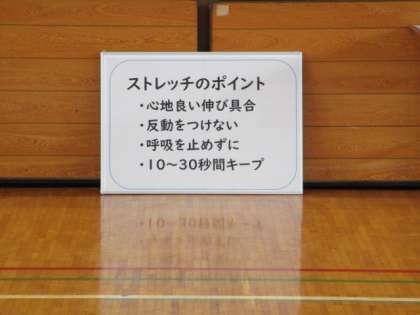 ストレッチのポイント
・心地良い伸び具合
・反動をつけない
・呼吸を止めずに
・10～30秒間キープ